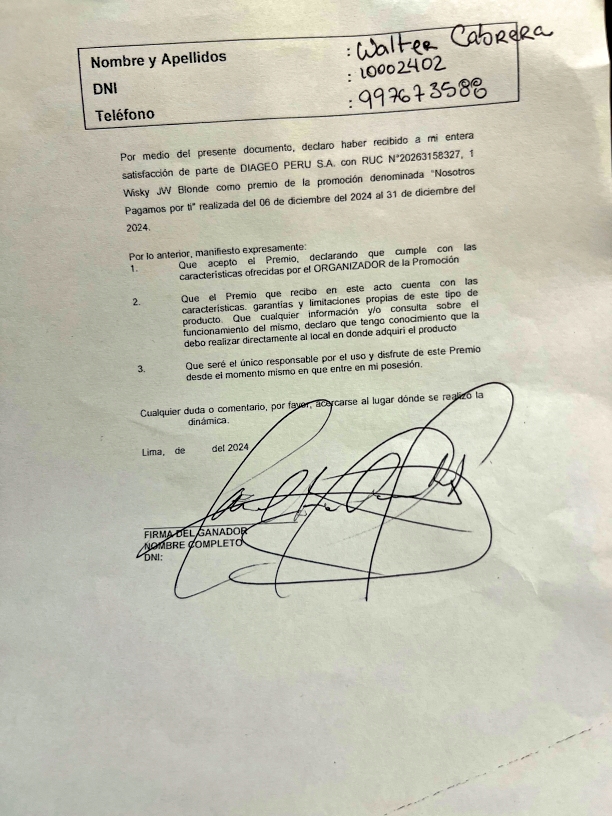 Nombre y Apellidos : Walter Cabrera
DNI : 10002402
Teléfono : 997673588
Por medio del presente documento, declaro haber recibido a mi entera
satisfacción de parte de DIAGEO PERU S.A. con RUC N°20263158327, 1
Wisky JW Blonde como premio de la promoción denominada "Nosotros
Pagamos por ti" realizada del 06 de diciembre del 2024 al 31 de diciembre del
2024.
Por lo anterior, manifiesto expresamente:
1. Que acepto el Premio, declarando que cumple con las
características ofrecidas por el ORGANIZADOR de la Promoción
2. Que el Premio que recibo en este acto cuenta con las
características, garantías y limitaciones propias de este tipo de
producto. Que cualquier información y/o consulta sobre el
funcionamiento del mismo, declaro que tengo conocimiento que la
debo realizar directamente al local en donde adquirí el producto
3. Que seré el único responsable por el uso y disfrute de este Premio
desde el momento mismo en que entre en mi posesión.
Cualquier duda o comentario, por favor, acercarse al lugar dónde se realizó la
dinámica.
Lima, de del 2024
FIRMA DEL GANADOR
NOMBRE COMPLETO
DNI: